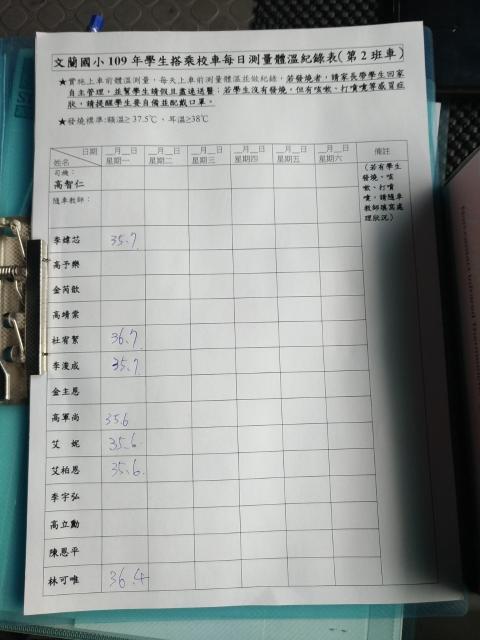 文蘭國小 109 年學生搭乘校車每日測量體溫紀錄表(第 2 班車)
★實施上車前體溫測量,每天上車前測量體溫並做紀錄,若發燒者,請家長帶學生回家
自主管理,並幫學生請假且盡速送醫;若學生沒有發燒,但有咳嗽、打噴嚏等感冒症
狀,請提醒學生要自備並配戴口罩。
★發燒標準:額溫≥ 37.5℃、耳溫≥38℃
日期 __月__日 __月__日 __月__日 __月__日 __月__日 __月__日 備註
姓名 星期一 星期二 星期三 星期四 星期五 星期六
司機:
高智仁
(若有學生
發燒、咳
嗽、打噴
嚏,請隨車
教師填寫處
理狀況)
隨車教師:
李緯芯 35.7
高予樂
金芮歆
高靖棠
杜宥絜 36.7
李浚成 35.7
金主恩
高軍尚 35.6
艾 妮 35.6
艾柏恩 35.6
李宇弘
高立勳
陳恩平
林可唯 36.4